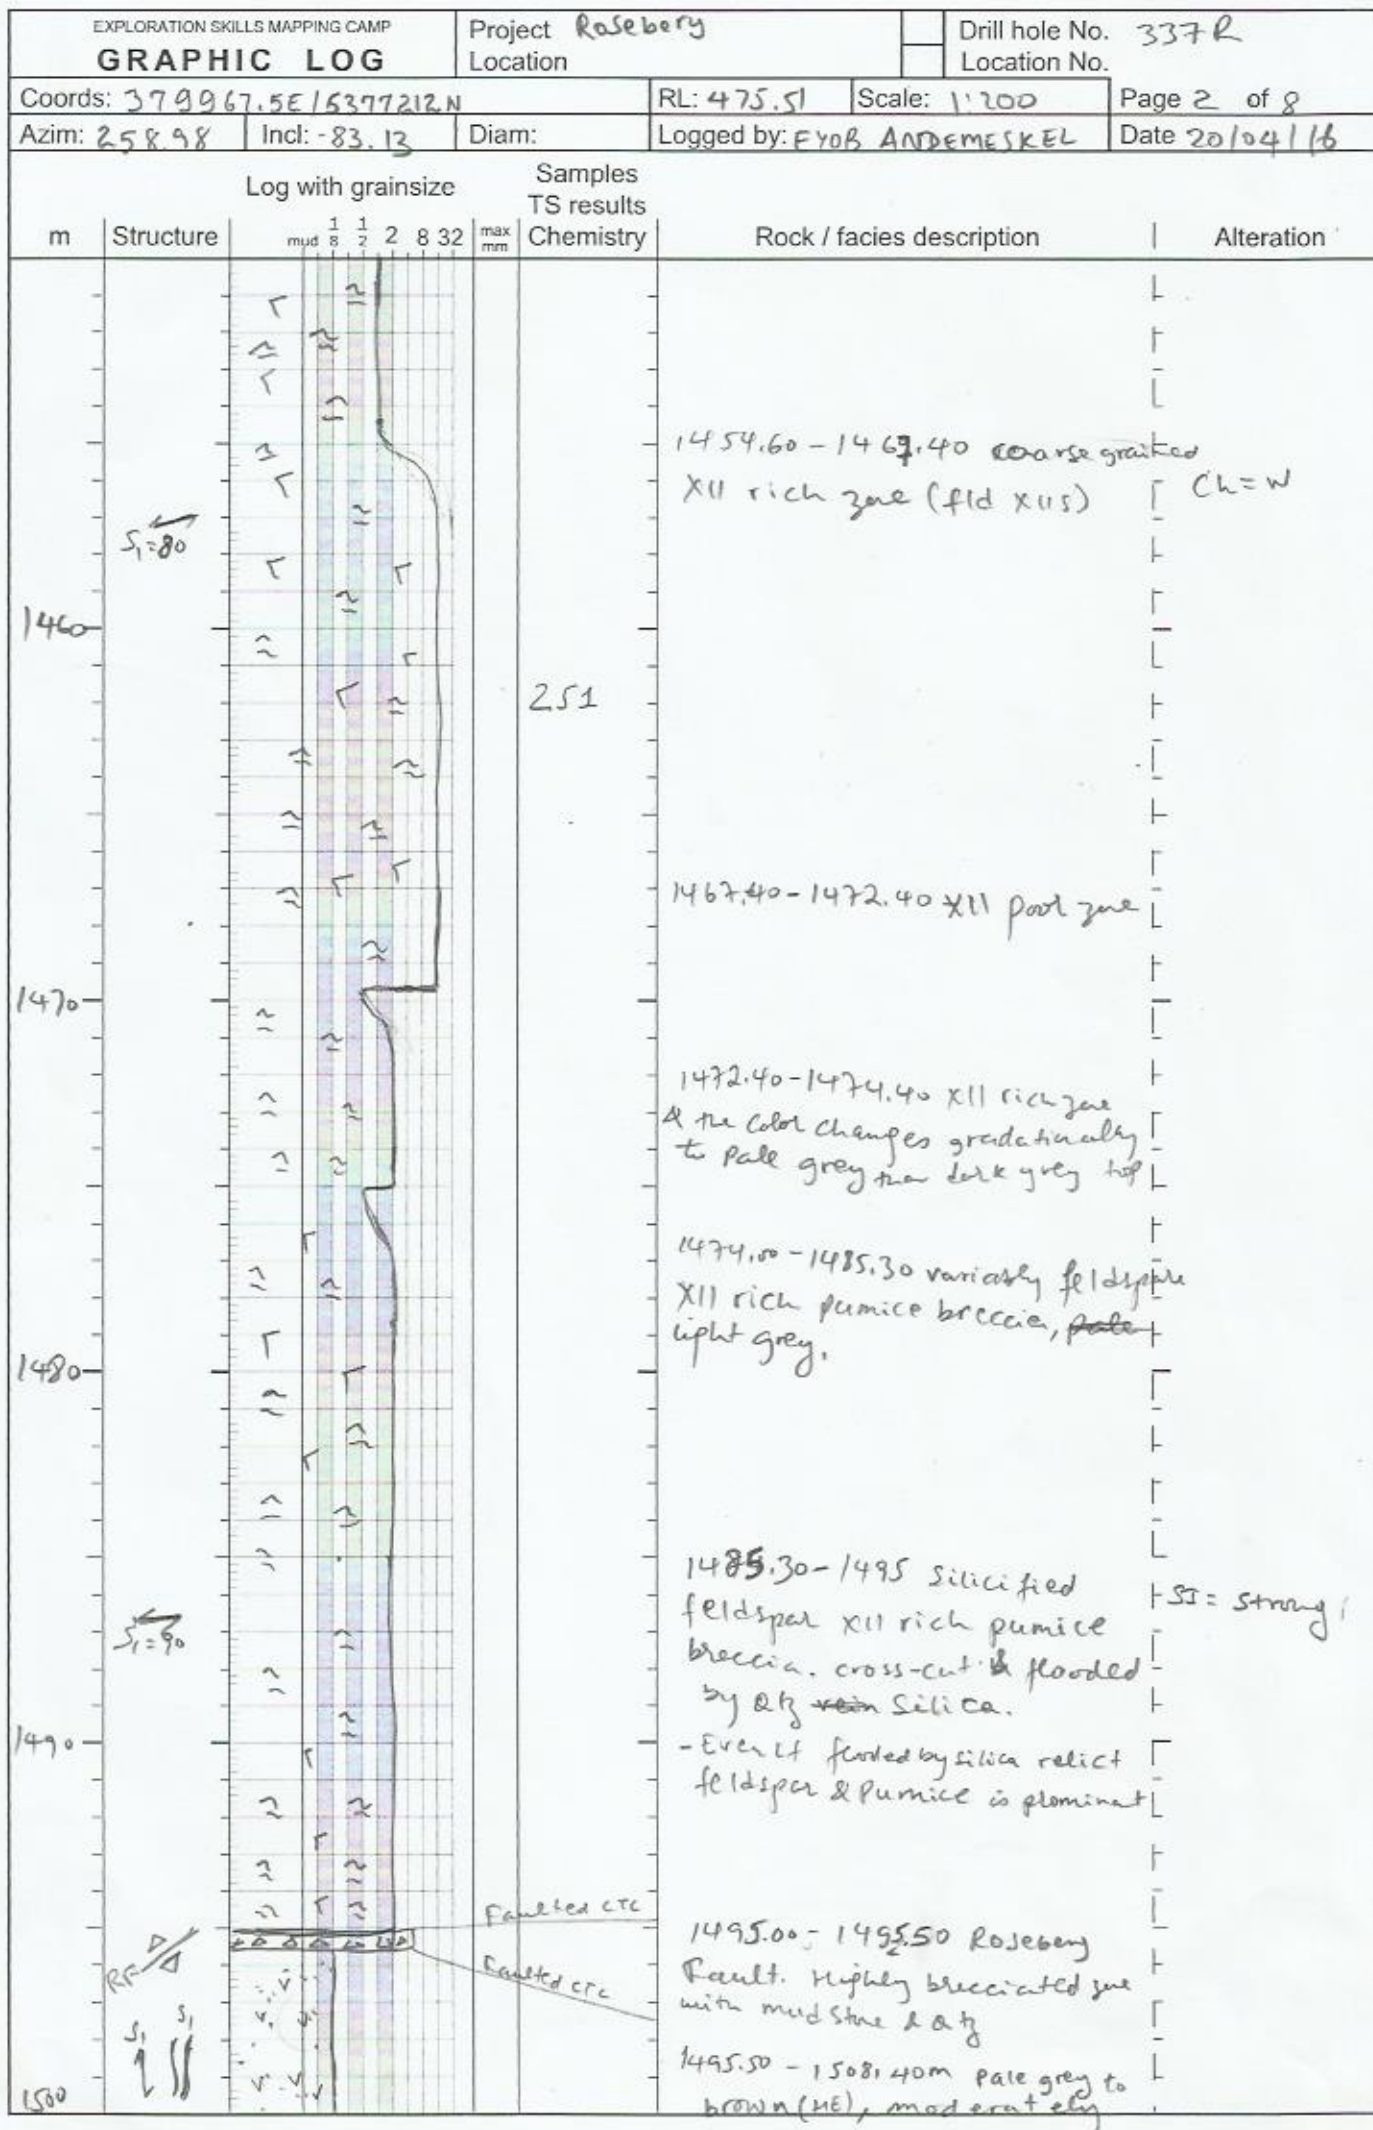 EXPLORATION SKILLS MAPPING CAMP
GRAPHIC LOG
Project Rosebery
Location
Drill hole No. 337R
Location No.
Coords: 379967.5E/5377212N
RL: 475.51
Scale: 1:200
Page 2 of 8
Azim: 258.98
Incl: -83.13
Diam:
Logged by: EYOB ANDEMESKEL
Date 20/04/16
m
Structure
Log with grainsize
mud 1/8 1/2 2 8 32
max mm
Samples
TS results
Chemistry
Rock / facies description
Alteration
1454.60-1467.40 coarse grained
Xll rich zone (fld xlls)
Ch=W
S1=80
1460
251
1467.40-1472.40 Xll poor zone
1470
1472.40-1474.40 Xll rich zone
& the color changes gradationally
to pale grey than dark grey top
1474.00-1485.30 variably feldspare
Xll rich pumice breccia, pale
light grey.
1480
1485.30-1495 Silicified
feldspar xll rich pumice
breccia. cross-cut & flooded
by qtz vein Silica.
SI= strong
S1=90
1490
-Even if flooded by silica relict
feldspar & Pumice is prominent
Faulted CTC
1495.00-1495.50 Rosebery
Fault. Highly brecciated zone
with mudstone & qtz
RF
Faulted CTC
S1 S1
1495.50-1508.40m pale grey to
brown (HE), moderately
1500